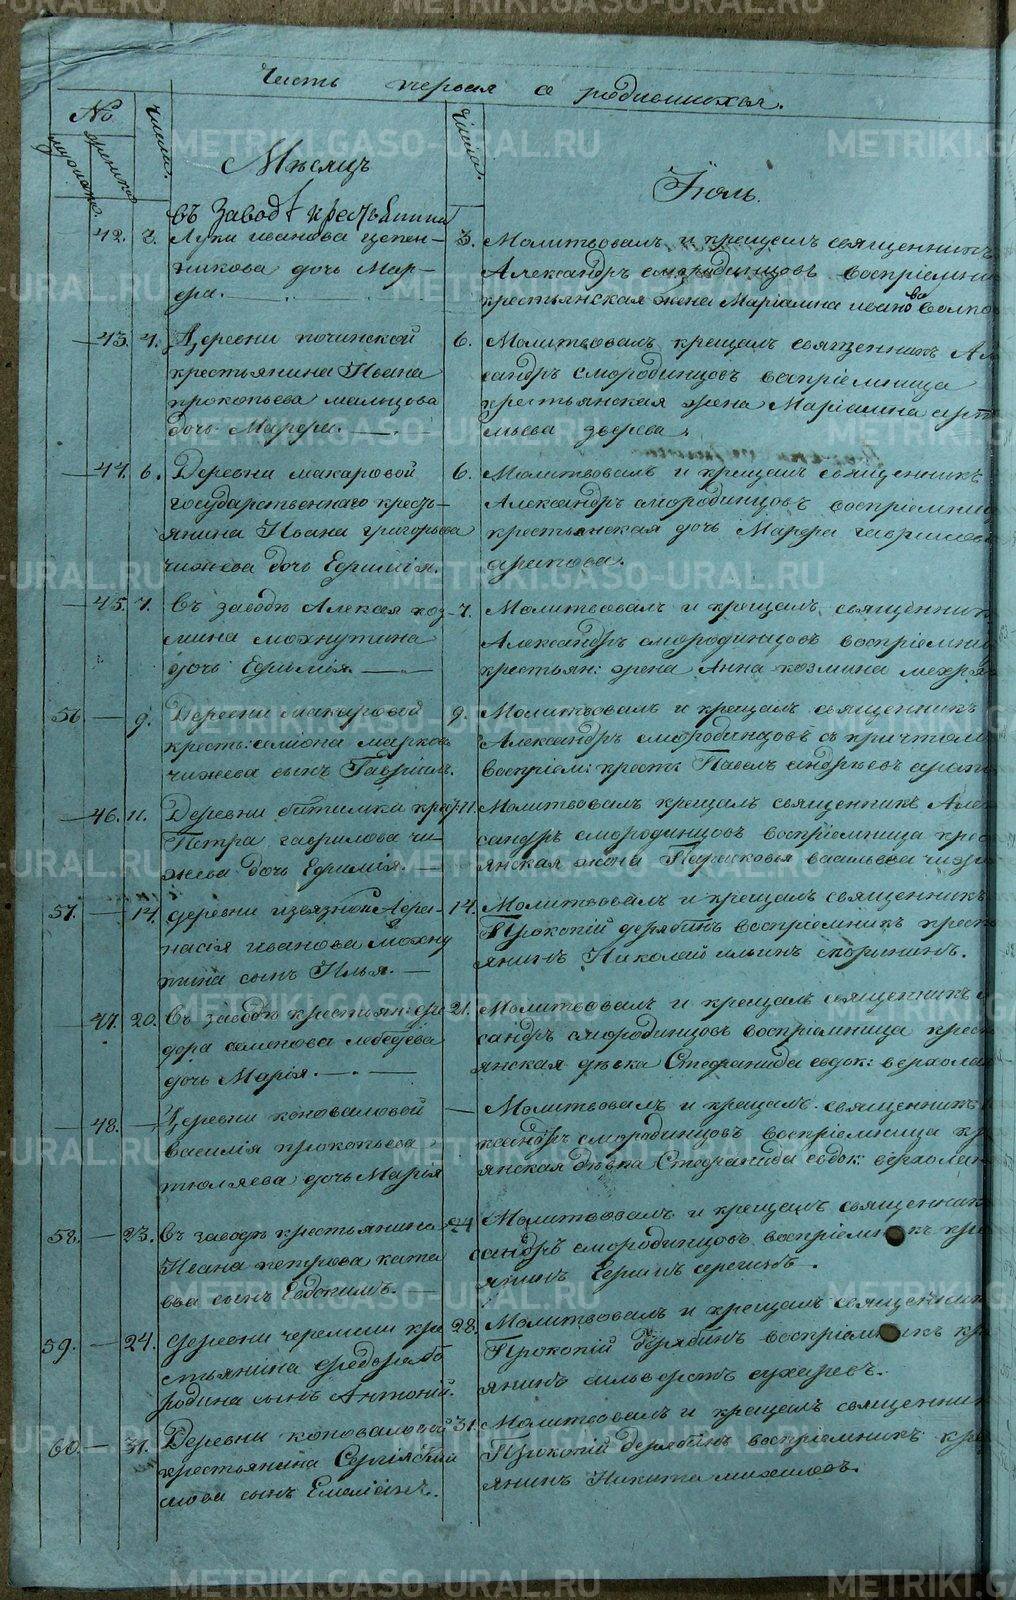 Часть первая о родившихся.
№
мужска.
женска.
числа.
Мѣсяцъ
числа.
Іюль.
въ Заводѣ крестьянина
42. 2. Луки иванова цепен-
никова дочь Мар-
фа.
3. Молитвовалъ и крещалъ священникъ
Александръ смородинцовъ воспріемни
крестьянская жена Маріамна ивано ва волко
43. 4. Деревни починской
крестьянина Ивана
прокопьева мальцова
дочь Марфа.
6. Молитвовалъ крещалъ священникъ Ал
сандръ смородинцовъ воспріемница
крестьянская жена Маріамна арте
мьева зверева.
44. 6. Деревни макаровой
государственнаго кресть-
янина Ивана григорьева
чижева дочь Ефимія.
6. Молитвовалъ и крещалъ священникъ
Александръ смородинцовъ воспремниц
крестьянская дочь Марфа гаврилов
арапова.
45. 7. Въ заводѣ Алексея коз-
мина мохнутина
дочь Ефимія.
7. Молитвовалъ и крещалъ священник
Александръ смородинцовъ воспріемни
крестьян: жена Анна козмина мехря
56. 9. Деревни макаровой
кресть: симіона марков
чижева сынъ Гавріилъ.
9. Молитвовалъ и крещалъ священник
Александръ смородинцовъ съ причтом
воспріем: крест: Павелъ андреевъ арапо
46. 11. Деревни битимки крес:
Петра гаврилова чи-
жева дочь Ефимія.
11. Молитвовалъ крещалъ священникъ Алек
сандръ смородинцовъ воспріемница крес
янская жена Парасковья васильева чиж
57. 14. деревни извязной Афа-
насія иванова мохну
тина сынъ Илья.
14. Молитвовалъ и крещалъ священникъ
Прокопій дерябинъ воспріемникъ крест
янинъ Николай ильинъ скорынинъ.
47. 20. Въ заводѣ крестьян: фе
дора семенова лебедева
дочь Марія.
21. Молитвовалъ и крещалъ священникъ
сандръ смородинцовъ воспріемница крест
янская дѣвка Стефанида евдок: верхолан
48. Деревни коноваловой
василія прокопьева
тюляева дочь Марія
Молитвовалъ и крещалъ священникъ
ксандръ смородинцовъ воспріемница кр
янская дѣвка Стефанида евдок: верхолан
58. 23. въ заводѣ крестьянина
Ивана петрова ката
ева сынъ Евдокимъ.
24 Молитвовалъ и крещалъ священник
сандръ смородинцовъ воспріемникъ кре
янинъ Ефимъ
59. 24. деревни черемши кре
стьянина федора бо
родина сынъ Антоній.
28. Молитвовалъ и крещалъ священник
Прокопій Дерябинъ воспріемникъ кр
янинъ сильверстъ сухаревъ.
60. 31. Деревни коноваловой
крестьянина Сергія
сынъ Емеліанъ.
31. Молитвовалъ и крещалъ священник
Прокопій дерябинъ воспріемникъ кре
янинъ Никита михаиловъ.
METRIKI.GASO-URAL.RU